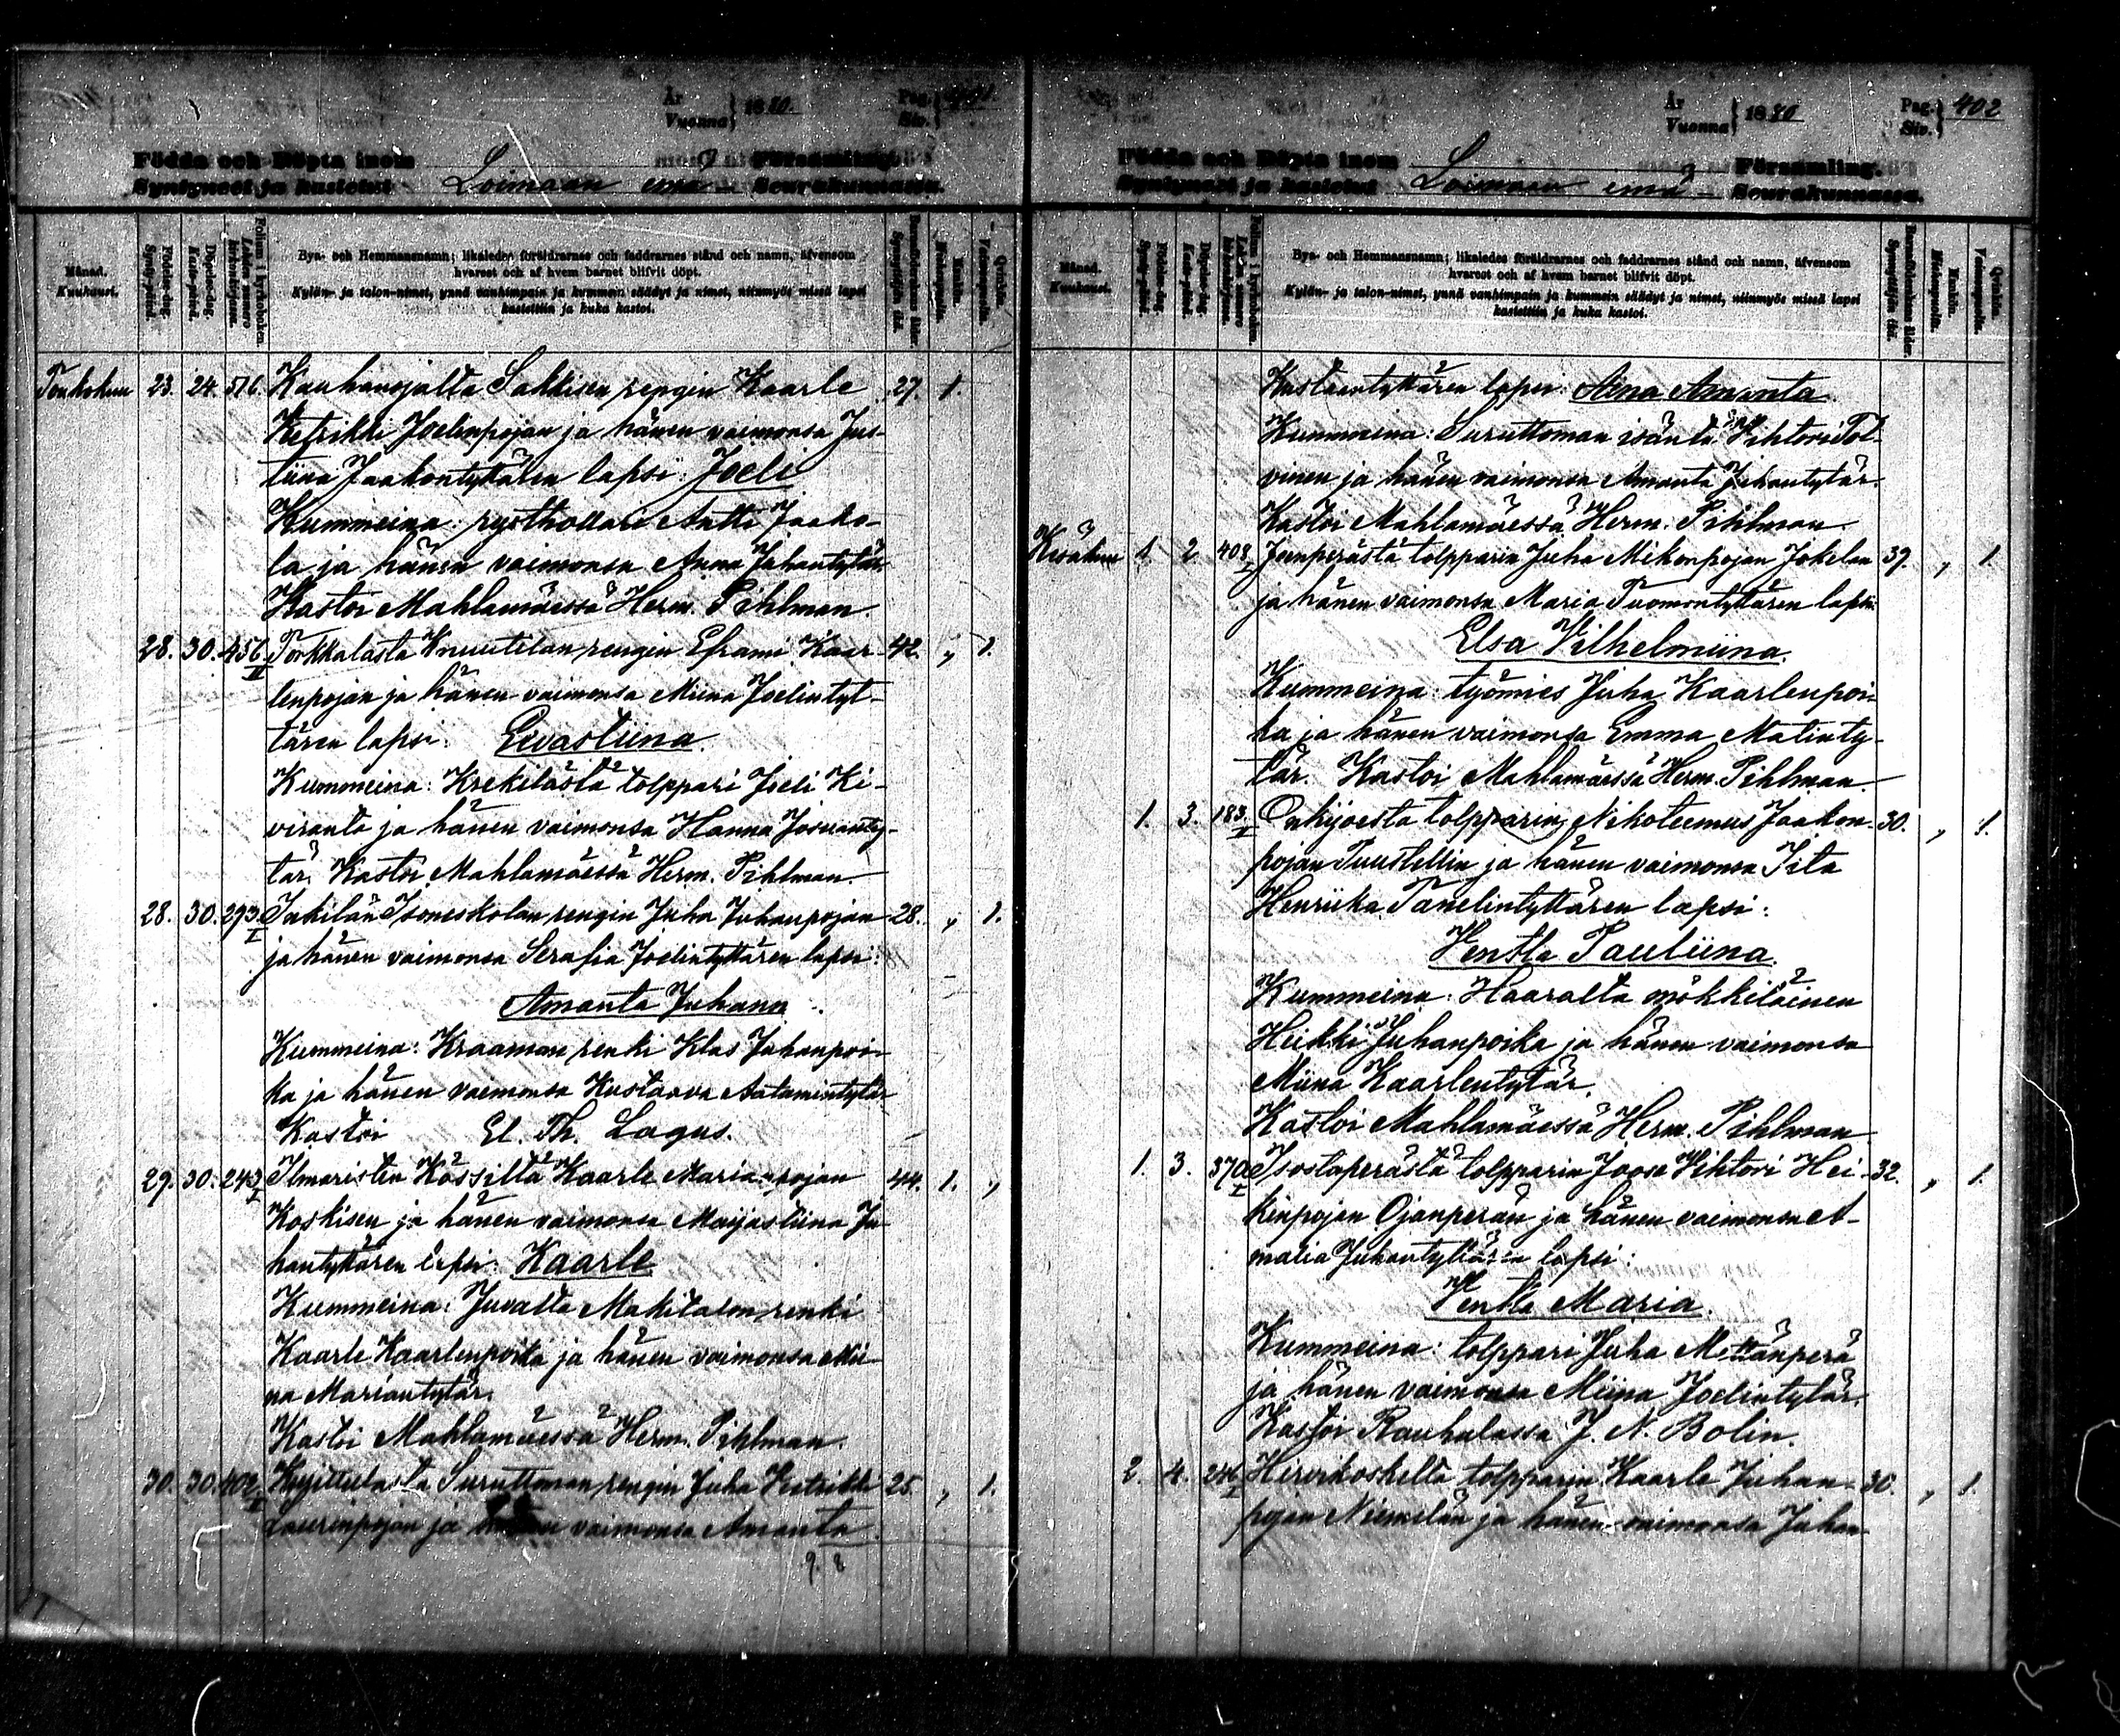 År
Vuonna } 1880.
Pag.
Siv. }
Födda och Döpta inom
Syntyneet ja kastetut
Loimaan emä
Församling.
Seurakunnassa.
Månad. Kuukausi.
Födelse-dag. Synty-päivä.
Döpelse-dag. Kaste-päivä.
Folium i kyrkoboken
Bya- och Hemmansnamn; likaledes föräldrarnes och faddrarnes stånd och namn, äfvensom
hvarest och af hvem barnet blifvit döpt.
Kylän- ja talon-nimet, ynnä vanhimpain ja kummein säädyt ja nimet, niinmyös missä lapsi
kastettiin ja kuka kastoi.
Barnaföderskans ålder. Synnyttäjän ikä.
Mankön. Miehenpuolia.
Qvinkön. Vaimonpuolia.
Toukokuu 23. 24. 576. Kauhanojalta Sakkisen rengin Kaarle 27. 1.
Ketrikki Joelinpojan ja hänen vaimonsa Jus-
tiina Jaakontyttären lapsi: Joeli
Kummeina: rysthollari Antti Jaako-
la ja hänen vaimonsa Anna Juhantytär.
Kastoi Mahlamäessä Herm. Pihlman.
28. 30. 456. II Torkkalasta Knuutilan rengin Eframi Kaar- 42. „ 1.
lenpojan ja hänen vaimonsa Miina Joelintyt-
tären lapsi: Eevastiina.
Kummeina: Krekilästä tolppari Joeli Ki-
viranta ja hänen vaimonsa Hanna Joosuanty-
tär. Kastoi Mahlamäessä Herm. Pihlman.
28. 30. 293. I Inkilän Isoneskolan rengin Juha Juhanpojan 28. „ 1.
ja hänen vaimonsa Serafia Joelintyttären lapsi:
Amanta Juhana
Kummeina: Kraaman renki Klas Juhanpoi-
ka ja hänen vaimonsa Kustaava Aatamintytär
Kastoi El. Th. Lagus.
29. 30. 243. I Ilmaristen Kässiltä Kaarle Marianpojan 44. 1. „
Koskisen ja hänen vaimonsa Maijastiina Ju-
hantyttären lapsi: Kaarle
Kummeina: Juvalta Mäkitalon renki
Kaarle Kaarlenpoika ja hänen vaimonsa Mii-
na Mariantytär.
Kastoi Mahlamäessä Herm. Pihlman.
30. 30. 402. I Kojittulasta Suruttoman rengin Juha Ketrikki 25. „ 1.
Laurinpojan ja hänen vaimonsa Amanta
9. 8
År
Vuonna } 1880
Pag.
Siv. } 402
Födda och Döpta inom
Syntyneet ja kastetut
Loimaan emä
Församling.
Seurakunnassa.
Månad. Kuukausi.
Födelse-dag. Synty-päivä.
Döpelse-dag. Kaste-päivä.
Folium i kyrkoboken
Bya- och Hemmansnamn; likaledes föräldrarnes och faddrarnes stånd och namn, äfvensom
hvarest och af hvem barnet blifvit döpt.
Kylän- ja talon-nimet, ynnä vanhimpain ja kummein säädyt ja nimet, niinmyös missä lapsi
kastettiin ja kuka kastoi.
Barnaföderskans ålder. Synnyttäjän ikä.
Mankön. Miehenpuolia.
Qvinkön. Vaimonpuolia.
Kustaantyttären lapsi: Aina Amanta.
Kummeina: Suruttoman isäntä Vihtori Tol-
vinen ja hänen vaimonsa Amanta Juhantytär.
Kastoi Mahlamäessä Herm. Pihlman.
Kesäkuu 1. 2. 403. I Junperästä tolpparin Juha Mikonpojan Jokelan 39. „ 1.
ja hänen vaimonsa Maria Tuomontyttären lapsi:
Elsa Vilhelmiina.
Kummeina: työmies Juha Kaarlenpoi-
ka ja hänen vaimonsa Emma Matinty-
tär. Kastoi Mahlamäessä Herm. Pihlman.
1. 3. 183. Onkijoesta tolpparin Nikoteemus Jaakon- 30. „ 1.
pojan Puustellin ja hänen vaimonsa Iita
Henriika Tanelintyttären lapsi:
Hentla Pauliina.
Kummeina: Haaralta mökkiläinen
Heikki Juhanpoika ja hänen vaimonsa
Miina Kaarlentytär.
Kastoi Mahlamäessä Herm. Pihlman
1. 3. 370. I Isostaperästä tolpparin Joose Vihtori Hei- 32. „ 1.
kinpojan Ojanperän ja hänen vaimonsa A-
malia Juhantyttären lapsi:
Hentla Maria.
Kummeina: tolppari Juha Mettänperä
ja hänen vaimonsa Miina Joelintytär.
Kastoi Rauhalassa J. N. Bolin.
2. 4. 246. I Hirvikoskelta tolpparin Kaarle Juhan- 30. „ 1.
pojan Niemelän ja hänen vaimonsa Juhan